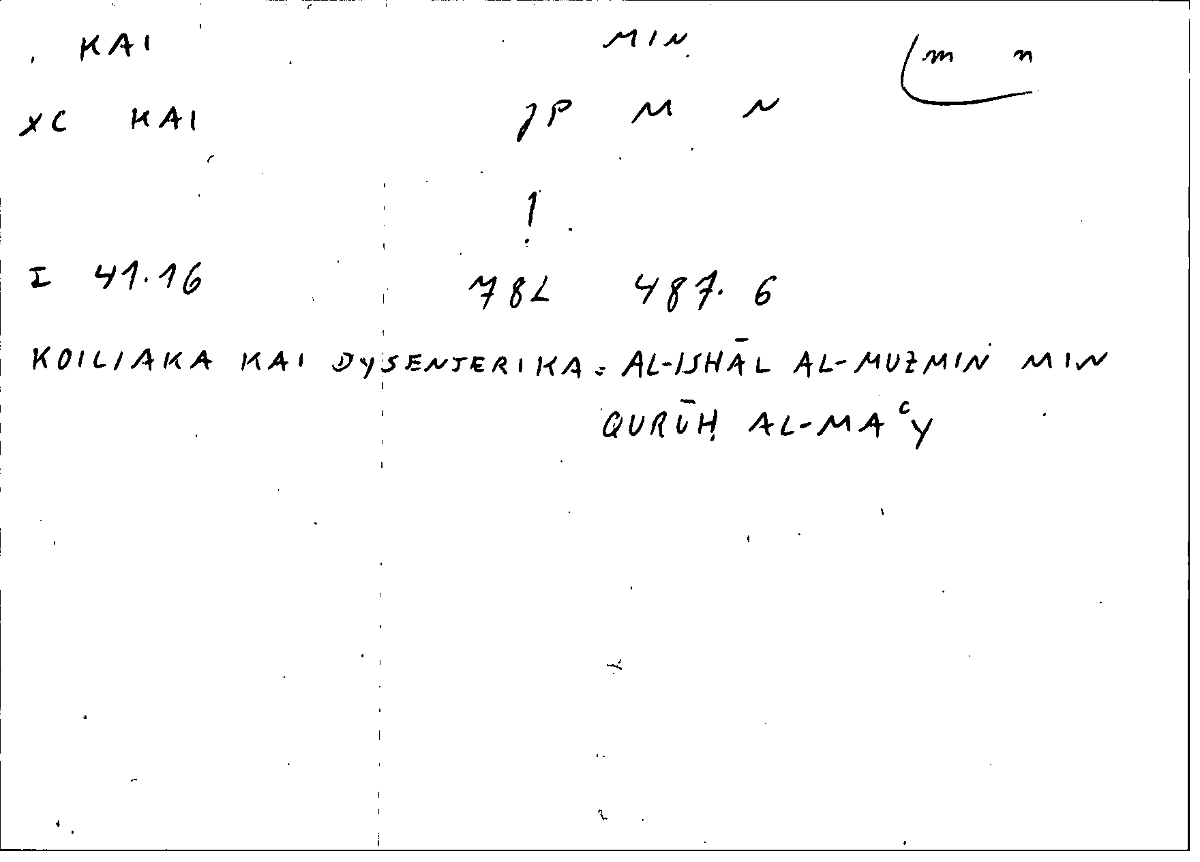 KAI MIN m n
XC KAI JP M N
!
I 41.16 78L 487.6
KOILIAKA KAI DYSENTERIKA = AL-ISHĀL AL-MUZMIN MIN
QURŪḤ AL-MAʿY